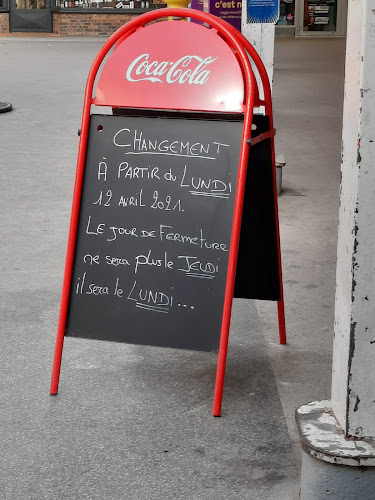 c'est n
Coca-Cola
CHANGEMENT
À PARTIR du LUNDI
12 AVRIL 2021.
LE JOUR DE FERMETURE
ne sera plus le JEUDI
il sera le LUNDI ...